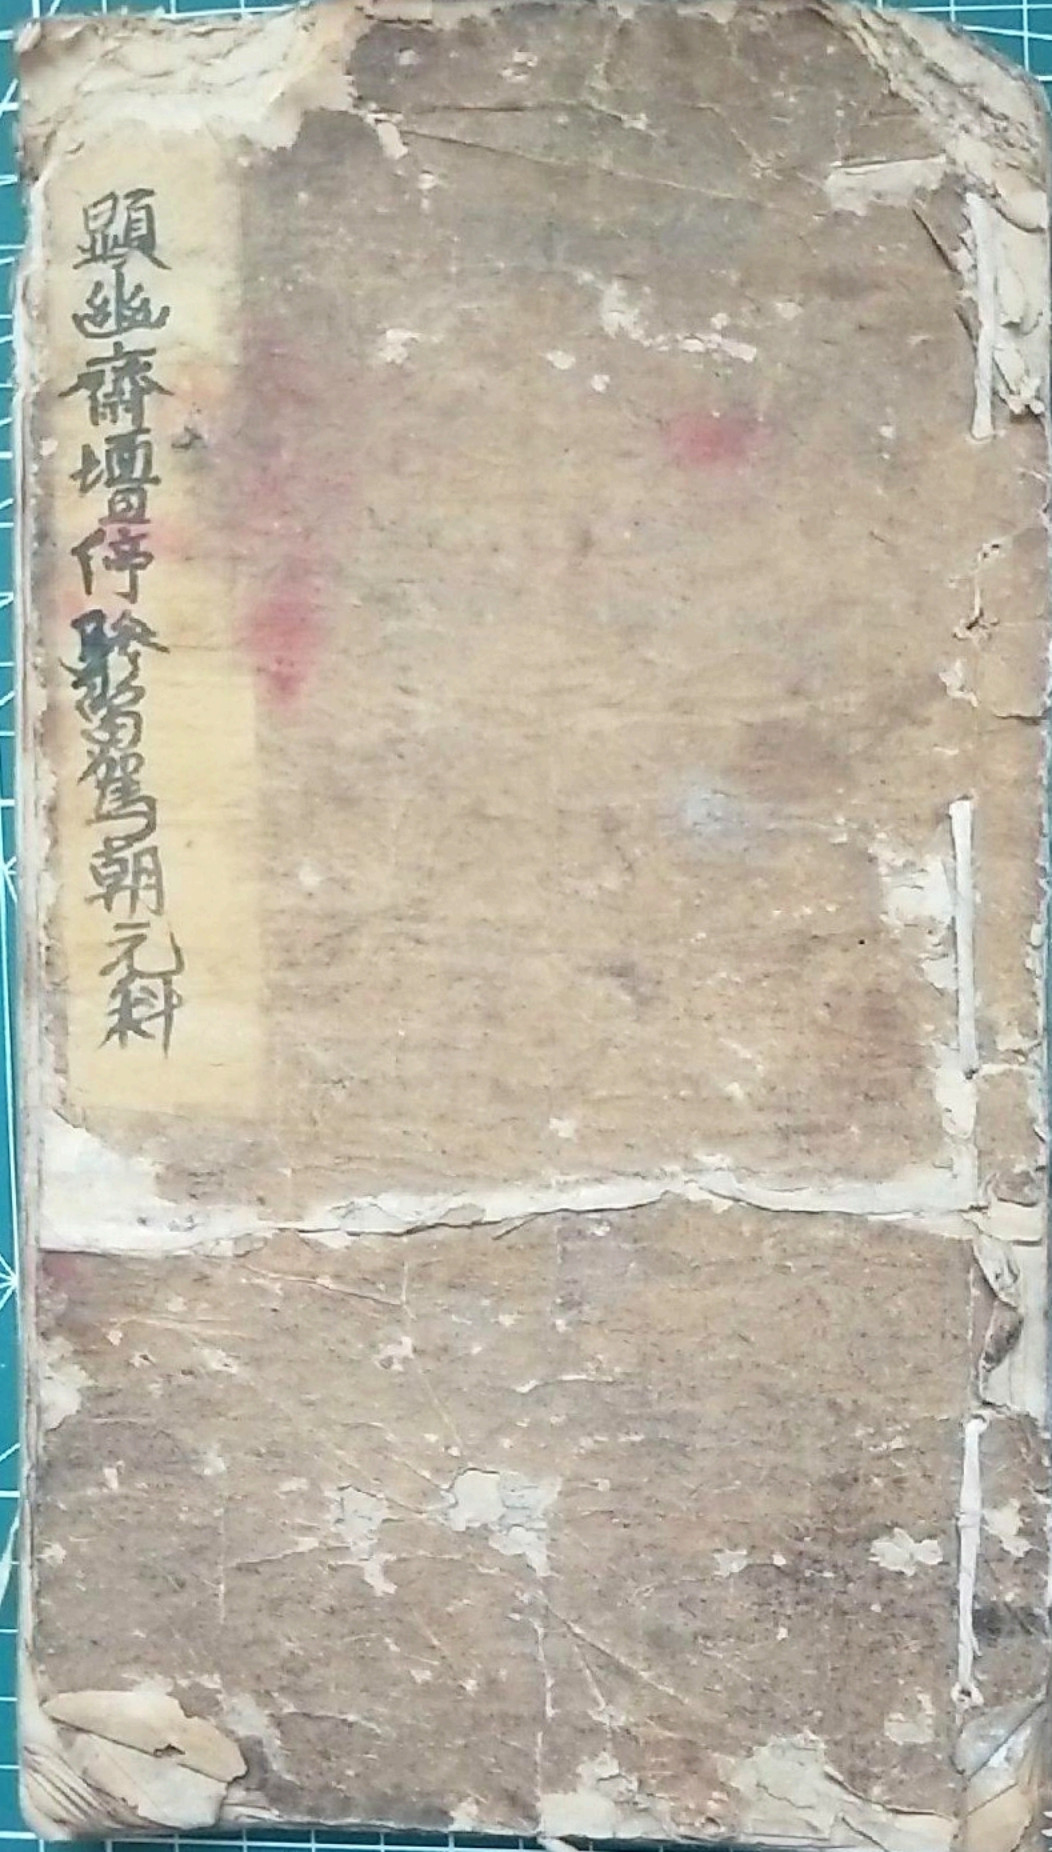 顯幽齋壇停驂留駕朝元科